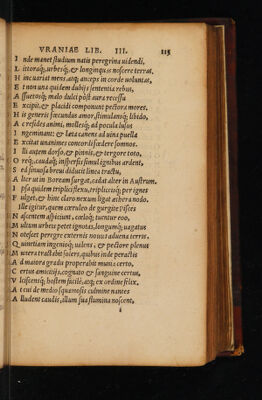 VRANIAE LIB. III. 113
I nde manet studium natis peregrina uidendi,
L ittoraq;, urbesq;, & longinquas noscere terras,
H inc uariat menses, atq; anceps in corde uoluntas,
E t non una quidem dubijs sententia rebus,
A ssuetosq; malo dulci post aura recissu
E xcipit, & placidi componit pectora mores.
H is generis foecundus amor, stimulansq; libido,
A c resides animi, mollesq; ad pocula lusus
I ngeminant: & laeta canens ad uina puella
E xcitat unanimes concordi foedere somnos.
I lli autem dorso, & pinnis, & tergore toto,
O req;, caudaq; inspersis simul ignibus ardent,
S ed sinuosa breui diducit linea tractu,
A lter ut in Boream surgat, cadat alter in Austrum.
I psa quidem triplici flexu, tripliciusq; per ignes
F ulget, & hinc claro nexum ligat aethera nodo.
Ille igitur, quem coeruleo de gurgite Pisces
N ascentem aspiciunt, coeloq; tuentur eoo,
M ultum urbes petet ignotas, longumq; uagatus
N otescet peregre externis nouus aduena terris.
Q uinetiam ingenioq; ualens, & pectore plenus
M utera tractabit soleers, quibus inde peractis
A d maiora gradu properabit munia certo,
C ertus amicitijs, cognato & sanguine certus,
V lciscensq; hostem facile, atq; ex ordine felix.
A t cui de medio squamosis culmine nantes
A lludent caudis, illum sua flumina noscent,